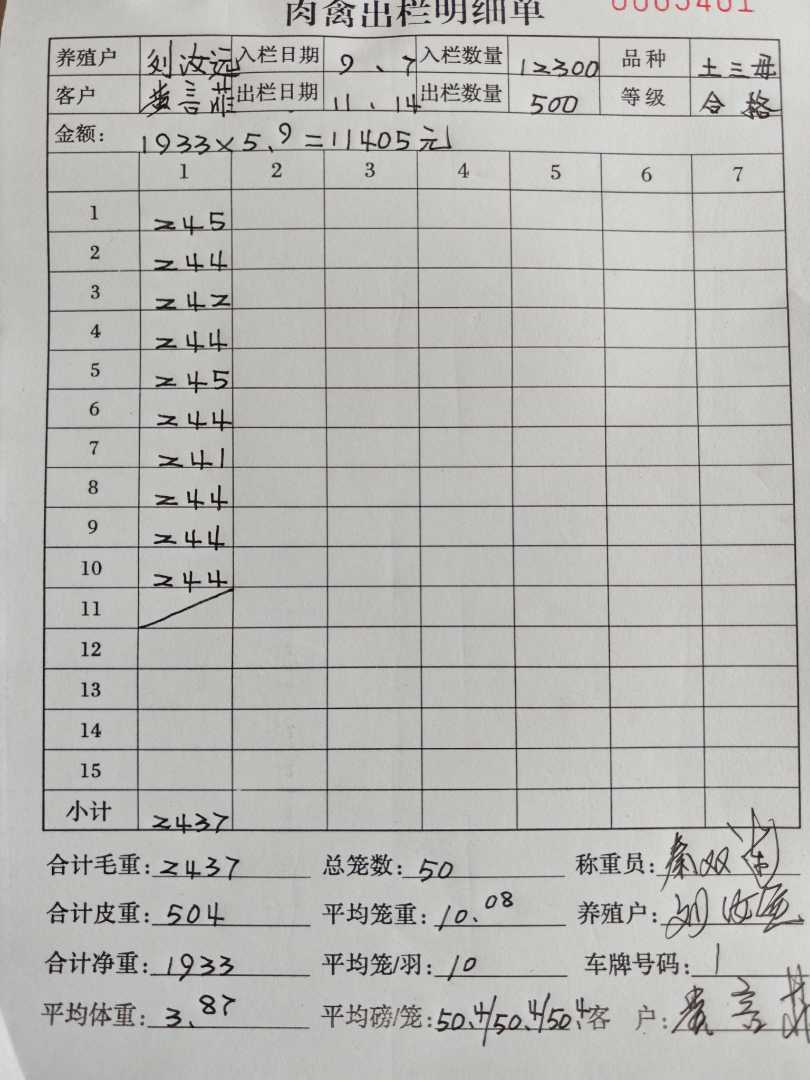 肉禽出栏明细单
养殖户 刘汝远 入栏日期 9、7 入栏数量 12300 品种 土三母
客户 黄言菲 出栏日期 11、14 出栏数量 500 等级 合格
金额: 1933×5、9=11405元
1 2 3 4 5 6 7
1 245
2 244
3 242
4 244
5 245
6 244
7 241
8 244
9 244
10 244
11
12
13
14
15
小计 2437
合计毛重: 2437 总笼数: 50 称重员: 秦双
合计皮重: 504 平均笼重: 10.08 养殖户: 刘汝远
合计净重: 1933 平均笼/羽: 10 车牌号码: 1
平均体重: 3.87 平均磅/笼: 50.4/50.4/50.4 客 户: 黄言